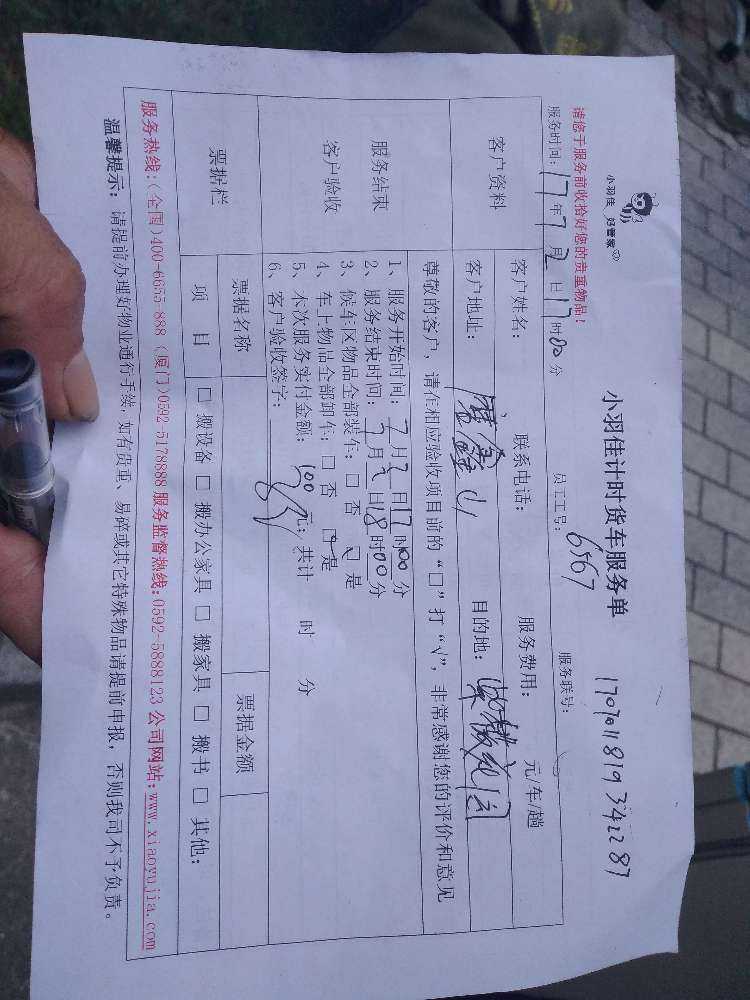 小羽佳 好管家
小羽佳计时货车服务单
1707011819342287
请您于服务前收拾好您的贵重物品！
服务时间：17年7月2日17时00分 员工工号：6567 服务联号：
客户资料
客户姓名： 联系电话： 服务费用： 元/车/趟
客户地址： 目的地：
尊敬的客户，请在相应验收项目前的“□”打“√”，非常感谢您的评价和意见
服务结束
客户验收
1、服务开始时间：7月2日17时00分
2、服务结束时间：7月2日18时00分
3、候车区物品全部装车：□ 否 □ 是
4、车上物品全部卸车：□ 否 □ 是
5、本次服务实付金额：100元；共计 时 分
6、客户验收签字：
票据栏
票据名称 票据金额
项 目 □ 搬设备 □ 搬办公家具 □ 搬家具 □ 搬书 □ 其他：
服务热线：（全国）400-6655-888（厦门）0592-5178888 服务监督热线：0592-5888123 公司网站：www.xiaoyujia.com
温馨提示：请提前办理好物业通行手续，如有贵重、易碎或其它特殊物品请提前申报，否则我司不予负责。